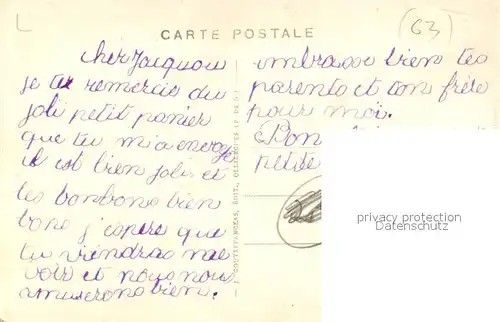 L
CARTE POSTALE
(63)
cher Jacquou
je te remercie du
joli petit panier
que tu m'a envoyé
il est bien joli et
tes bonbons bien
bons j'espère que
tu viendras me
voir et nous nous
amuserons bien.
embrasse bien tes
parents et ton frère
pour moi.
Bon
petite
privacy protection
Datenschutz